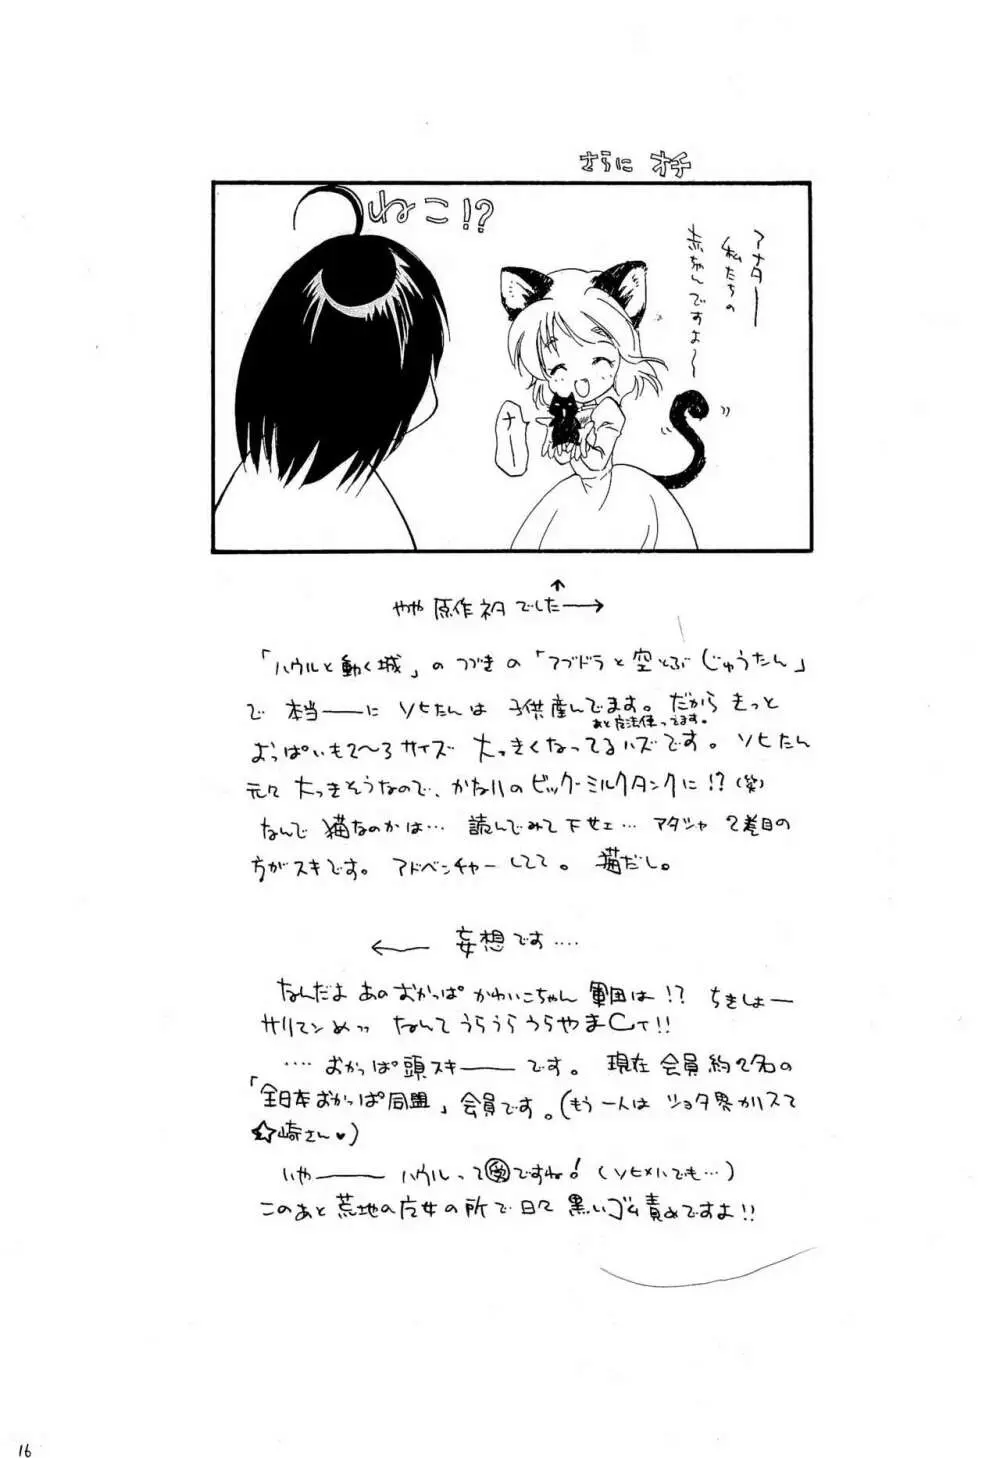 さらに オチ
ねこ!?
アナター
私たちの
赤ちゃんですよ〜
ナー
やや 原作ネタでした→
「ハウルと動く城」の つづきの「アブドラと空とぶじゅうたん」
で 本当——に ソヒたんは 子供産んでます。だから きっと
あと魔法使ってます。
おっぱいも2〜3サイズ 大っきくなってるハズです。ソヒたん
元々 大っきそうなので、かなりの ビッグ・ミルクタンクに!?(笑)
なんで 猫なのかは… 読んでみて下せェ… アタシャ 2巻目の
方がスキです。アドベンチャーしてて。猫だし。
← 妄想です‥‥
なんだよ あのおかっぱ かわいこちゃん 軍団は!? ちきしょー
サリマンめッ なんて うらうら うらやましィ!!
‥‥ おかっぱ頭スキ——です。現在 会員 約2名の
「全日本おかっぱ同盟」会員です。(もう一人は ショタ界カリスマ
☆崎さん♥)
いや—— ハウルって㊙ですね!(ソヒメハでも…)
このあと 荒地の魔女の所で 日々 黒いゴム責めですよ!!
16